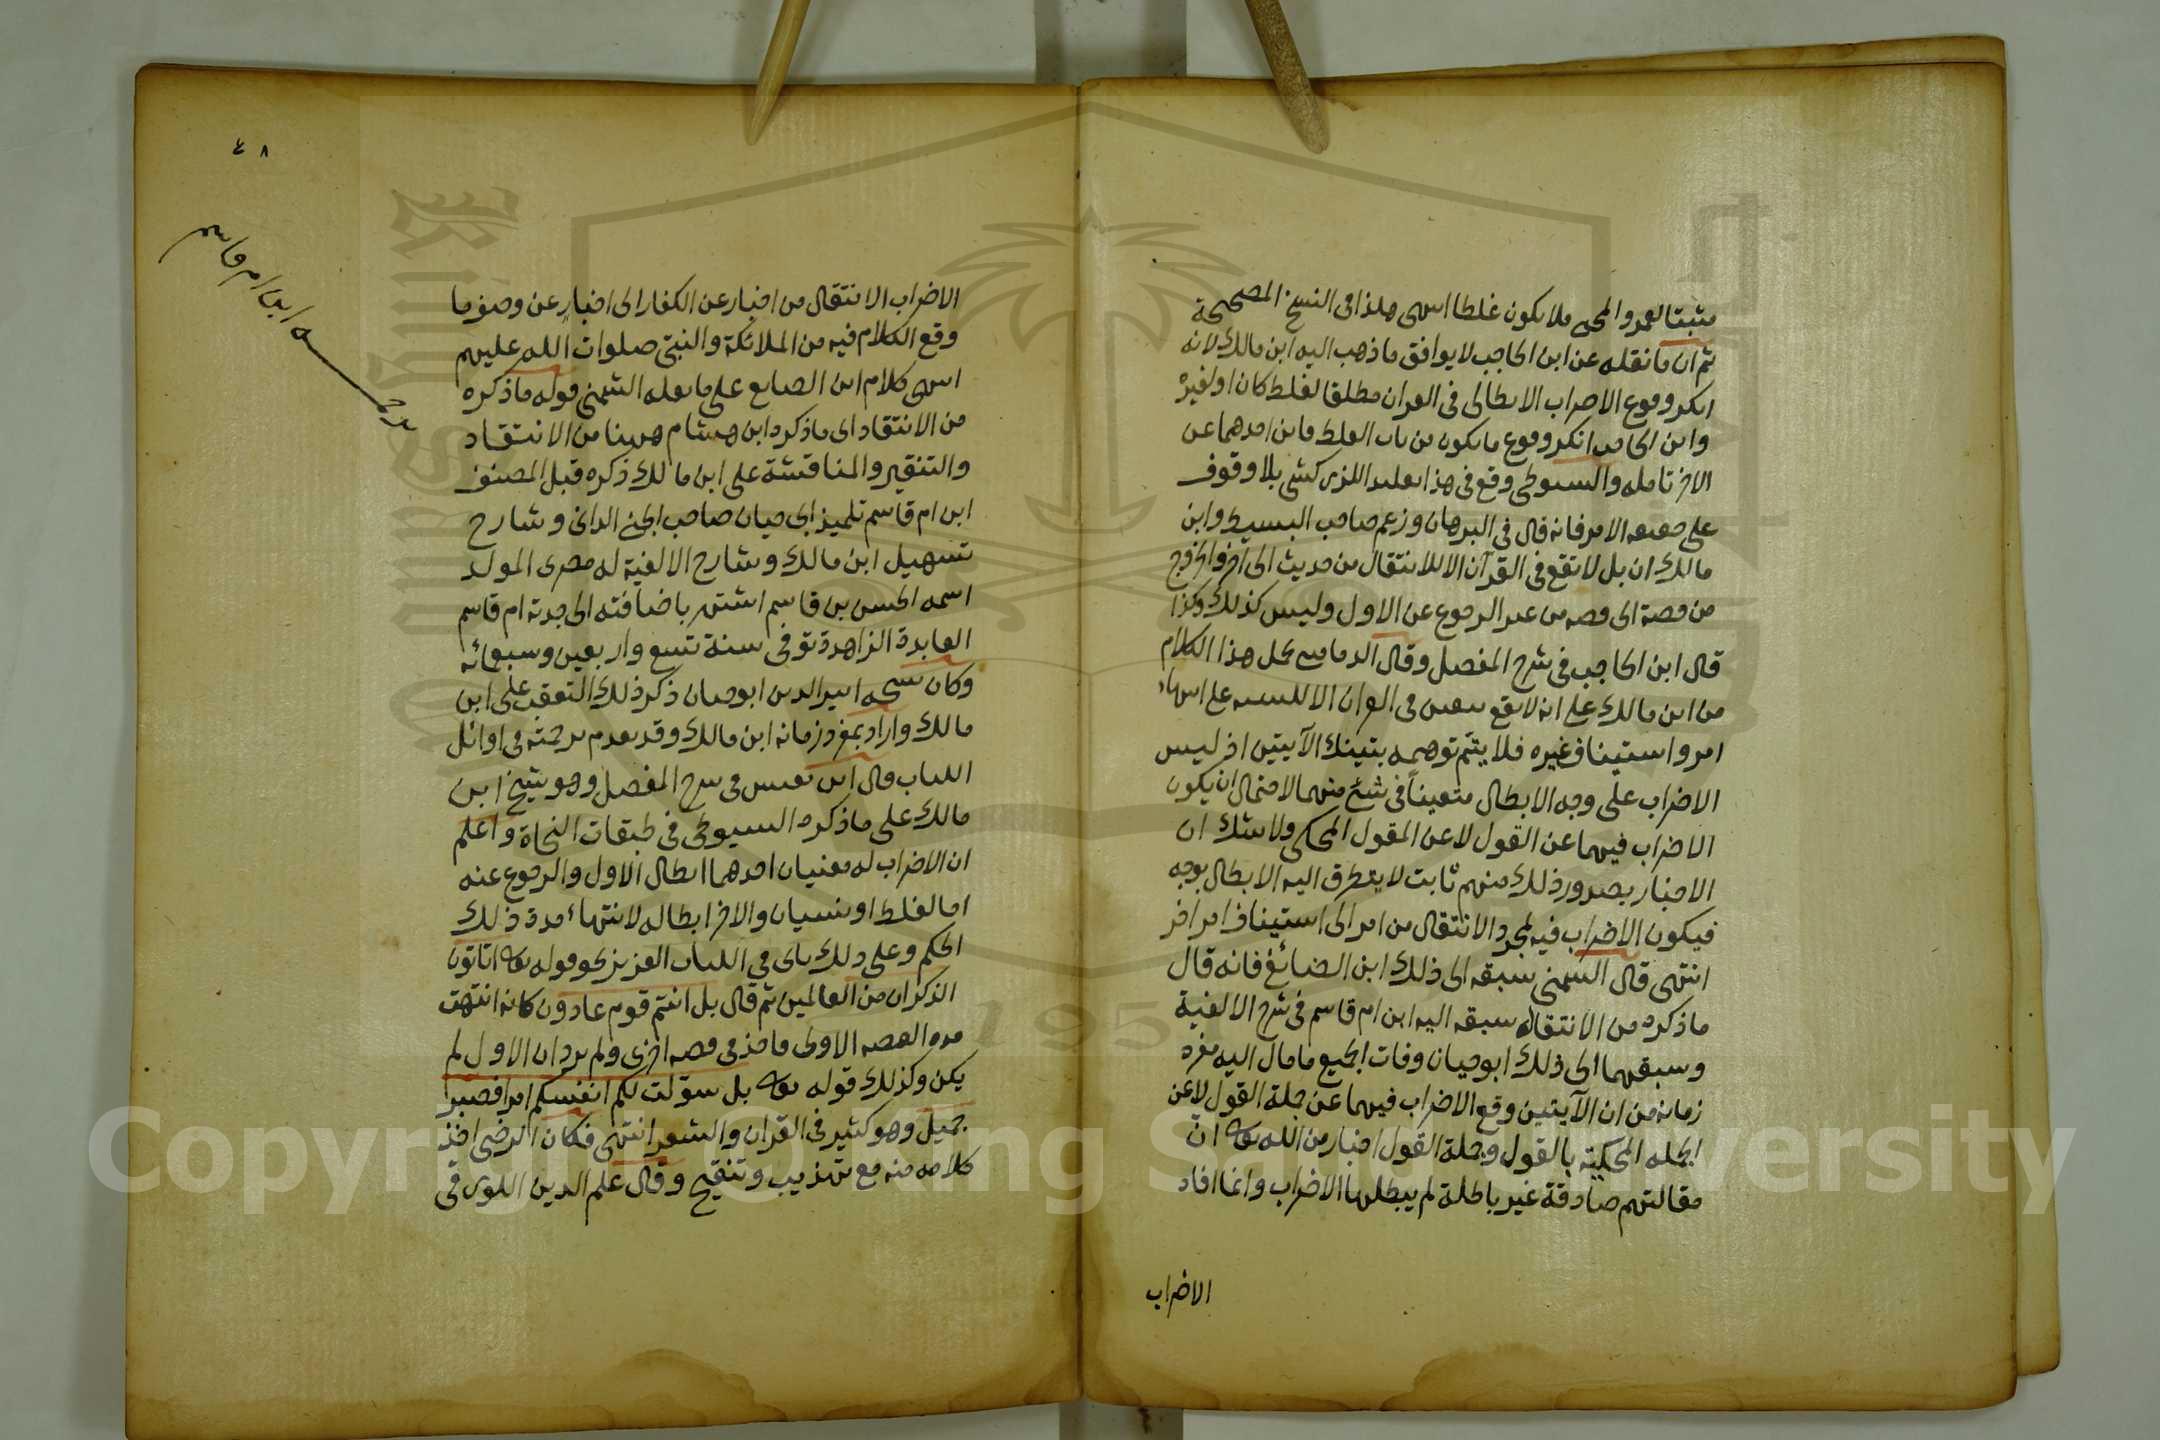 مثبتا لعمرو المجي فلا يكون غلطا انتهى هكذا في النسخ المصححة
ثم ان ما نقله عن ابن الحاجب لا يوافق ما ذهب اليه ابن مالك لانه
انكر وقوع الاضراب الابطالي في القران مطلقا لغلط كان او لغيره
وابن الحاجب انكر وقوع ما يكون من باب الغلط فاين احدهما عن
الاخر تامله والسيوطي وقع في هذا تقليد الزركشي بلا وقوف
على حقيقة الامر فانه قال في البرهان وزعم صاحب البسيط وابن
مالك ان بل لا تقع في القرآن الا للانتقال من حديث الى آخر والخروج
من قصة الى قصه من غير الرجوع عن الاول وليس كذلك وكذا
قال ابن الحاجب في شرح المفصل وقال الدماميني يحمل هذا الكلام
من ابن مالك على انه لا يقع بيقين في القران الا للتنبيه على انتهاء
امر واستيناف غيره فلا يتم توهيمه بتينك الآيتين اذ ليس
الاضراب على وجه الابطال متعينا في شئ منهما لاحتمال ان يكون
الاضراب فيهما عن القول لا عن المقول المحكي ولا شك ان
الاخبار بصدور ذلك منهم ثابت لا يتطرق اليه الابطال بوجه
فيكون الاضراب فيه لمجرد الانتقال من امر الى استيناف امر اخر
انتهى قال الشمني سبقه الى ذلك ابن الصائغ فانه قال
ماذكره من الانتقاله سبقه اليه ابن ام قاسم في شرح الالفية
وسبقهما الى ذلك ابو حيان وفات الجميع ما مال اليه مفرد
زمانه من ان الآيتين وقع الاضراب فيهما عن جملة القول لا عن
الجمله المحكية بالقول وجملة القول اخبار من الله تعالى ان
مقالتهم صادقة غير باطلة لم يبطلها الاضراب وانما افاد
الاضراب
٤٨
ترجمـــه ابن ام قاسم
الاضراب الانتقال من اخبار عن الكفار الى اخبار عن وصف ما
وقع الكلام فيه من الملائكة والنبي صلوات الله عليهم
انتهى كلام ابن الصايغ على ما نقله الشمني قوله ماذكره
من الانتقاد اي ماذكره ابن هشام ههنا من الانتقاد
والتنقير والمناقشة على ابن مالك ذكره قبل المصنف
ابن ام قاسم تلميذ ابي حيان صاحب الجنى الداني وشارح
تسهيل ابن مالك وشارح الالفية له مصرى المولد
اسمه الحسن بن قاسم اشتهر باضافته الى جدته ام قاسم
العابدة الزاهدة توفي سنة تسع واربعين وسبعمائه
وكان شيخه اثير الدين ابو حيان ذكر ذلك التعقب على ابن
مالك واراد بمفرد زمانه ابن مالك وقد تقدم ترجمته في اوائل
الكتاب قال ابن يعيش في شرح المفصل وهو شيخ ابن
مالك على ماذكره السيوطي في طبقات النحاة واعلم
ان الاضراب له معنيان احدهما ابطال الاول والرجوع عنه
اما لغلط او نسيان والاخر ابطاله لانتهاء مدة ذلك
الحكم وعلى ذلك ياتى في الكتاب العزيز نحو قوله تعالى اتاتون
الذكران من العالمين ثم قال بل انتم قوم عادون كانه انتهت
مدة القصه الاولى فاخذ في قصه اخرى ولم يرد ان الاول لم
يكن وكذلك قوله تعالى بل سولت لكم انفسكم امرا فصبر
جميل وهو كثير في القران والشعر انتهى فكان الرضي اخذ
كلامه منه مع تهذيب وتنقيح وقال علم الدين اللورقي
Copyright © King Saud University
1957